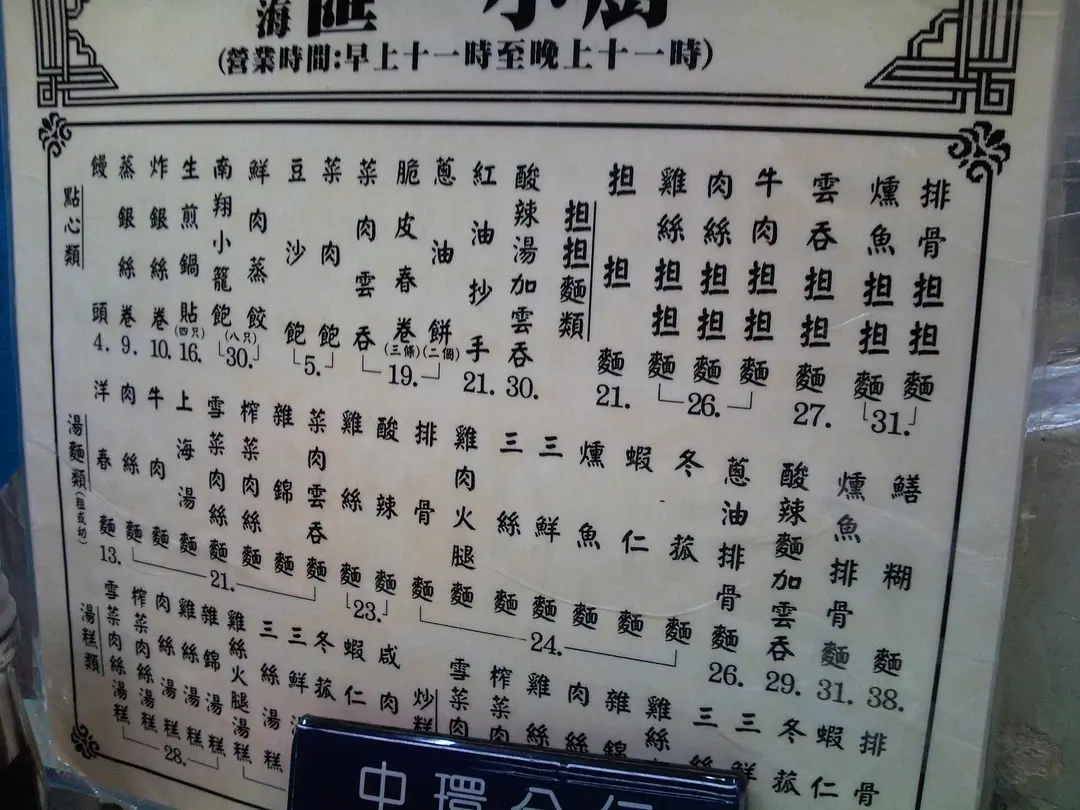 海匯小廚
(營業時間:早上十一時至晚上十一時)
點心類
饅頭 4.
蒸銀絲卷 9.
炸銀絲卷 10.
生煎鍋貼(四只) 16.
南翔小籠飽(八只)
鮮肉蒸餃
30.
豆沙飽
菜肉飽
5.
菜肉雲吞
脆皮春卷(三條)
蔥油餅(二個)
19.
紅油抄手 21.
酸辣湯加雲吞 30.
担担麵類
担担麵 21.
雞絲担担麵
肉絲担担麵
牛肉担担麵
26.
雲吞担担麵 27.
燻魚担担麵
排骨担担麵
31.
湯麵類(粗或幼)
洋春麵 13.
肉絲麵
牛肉麵
上海湯麵
雪菜肉絲麵
榨菜肉絲麵
雜錦麵
菜肉雲吞麵
21.
雞絲麵
酸辣麵
23.
排骨麵
雞肉火腿麵
三絲麵
三鮮麵
燻魚麵
蝦仁麵
冬菰麵
24.
蔥油排骨麵 26.
酸辣麵加雲吞 29.
燻魚排骨麵 31.
鱔糊麵 38.
湯糕類
雪菜肉絲湯糕
榨菜肉絲湯糕
肉絲湯糕
雞絲湯糕
雜錦湯糕
28.
雞絲火腿湯糕
三絲湯糕
三鮮湯
冬菰
蝦仁
咸肉
炒糕
雪菜肉
榨菜肉絲
雞絲
肉絲
雜錦
雞絲
三絲
三鮮
冬菰
蝦仁
排骨
中環分行